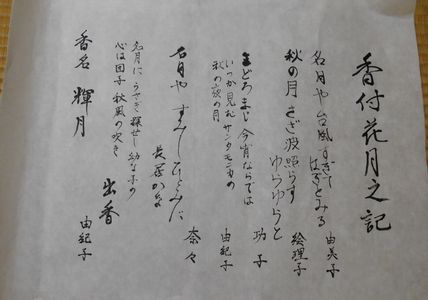 香付花月之記
名月や台風すぎて
ほっとみる
由美子
秋の月さざ波照らす
ゆらゆらと
絵理子
まどろまじ今宵ならでは
功子
いつか見たサンタモニカの
秋の夜の月
由紀子
名月やすみしひとみに
長居かな
奈々
名月にうさぎ探せし幼な子の
心は団子秋風の吹き
出香
由紀子
香名 輝月